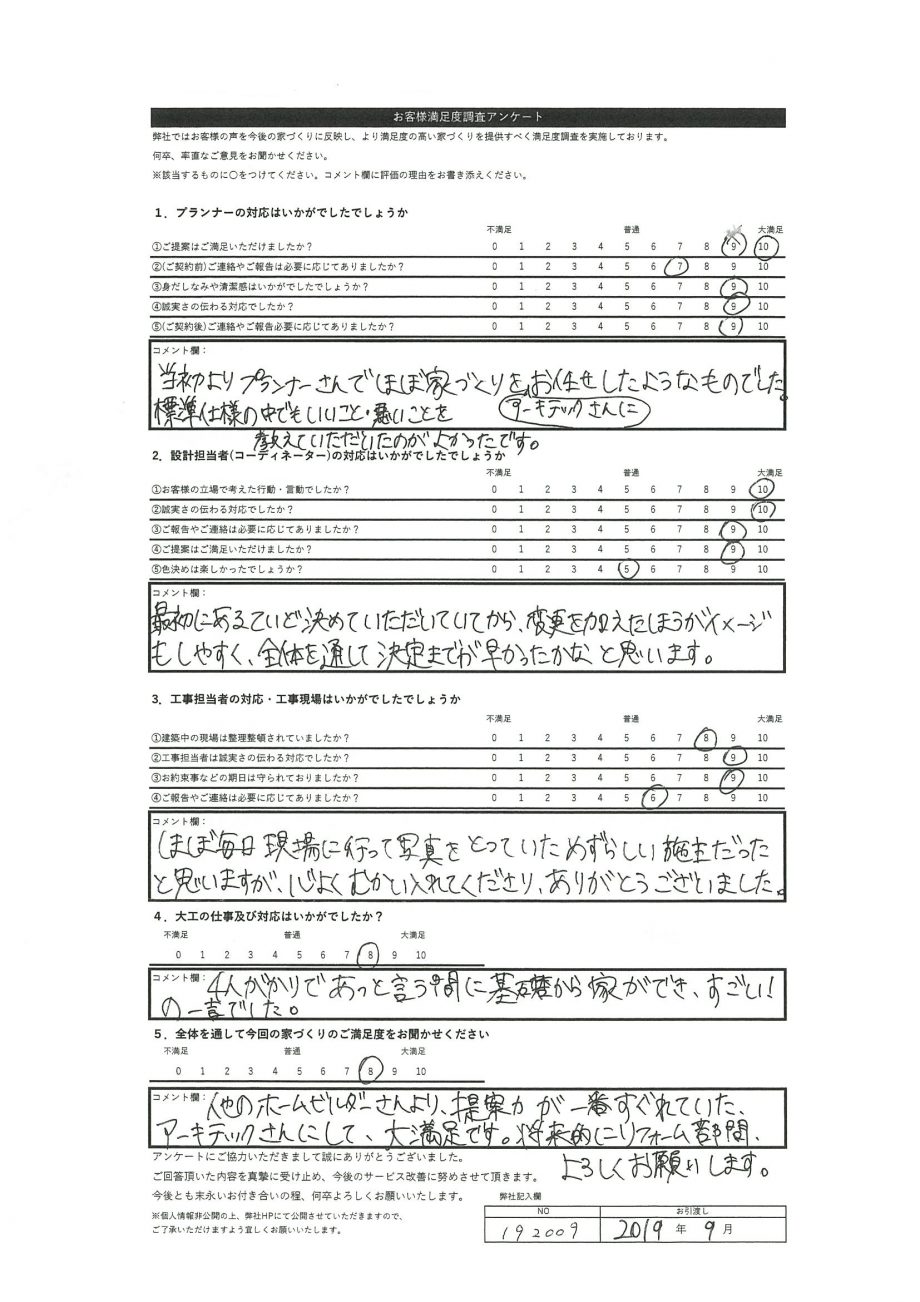 お客様満足度調査アンケート
弊社ではお客様の声を今後の家づくりに反映し、より満足度の高い家づくりを提供すべく満足度調査を実施しております。
何卒、率直なご意見をお聞かせください。
※該当するものに○をつけてください。コメント欄に評価の理由をお書き添えください。
1．プランナーの対応はいかがでしたでしょうか
不満足 普通 大満足
①ご提案はご満足いただけましたか？ 0 1 2 3 4 5 6 7 8 9 10
②(ご契約前)ご連絡やご報告は必要に応じてありましたか？ 0 1 2 3 4 5 6 7 8 9 10
③身だしなみや清潔感はいかがでしたでしょうか？ 0 1 2 3 4 5 6 7 8 9 10
④誠実さの伝わる対応でしたか？ 0 1 2 3 4 5 6 7 8 9 10
⑤(ご契約後)ご連絡やご報告必要に応じてありましたか？ 0 1 2 3 4 5 6 7 8 9 10
コメント欄：
当初よりプランナーさんでほぼ家づくりをお任せしたようなものでした。
標準仕様の中でもいいこと・悪いことを アーキテックさんに
教えていただいたのがよかったです。
2．設計担当者(コーディネーター)の対応はいかがでしたでしょうか
不満足 普通 大満足
①お客様の立場で考えた行動・言動でしたか？ 0 1 2 3 4 5 6 7 8 9 10
②誠実さの伝わる対応でしたか？ 0 1 2 3 4 5 6 7 8 9 10
③ご報告やご連絡は必要に応じてありましたか？ 0 1 2 3 4 5 6 7 8 9 10
④ご提案はご満足いただけましたか？ 0 1 2 3 4 5 6 7 8 9 10
⑤色決めは楽しかったでしょうか？ 0 1 2 3 4 5 6 7 8 9 10
コメント欄：
最初にあるていど決めていただいていてから、変更を加えたほうがイメージ
もしやすく、全体を通して決定までが早かったかなと思います。
3．工事担当者の対応・工事現場はいかがでしたでしょうか
不満足 普通 大満足
①建築中の現場は整理整頓されていましたか？ 0 1 2 3 4 5 6 7 8 9 10
②工事担当者は誠実さの伝わる対応でしたか？ 0 1 2 3 4 5 6 7 8 9 10
③お約束事などの期日は守られておりましたか？ 0 1 2 3 4 5 6 7 8 9 10
④ご報告やご連絡は必要に応じてありましたか？ 0 1 2 3 4 5 6 7 8 9 10
コメント欄：
ほぼ毎日現場に行って写真をとっていためずらしい施主だった
と思いますが、心よくむかい入れてくださり、ありがとうございました。
4．大工の仕事及び対応はいかがでしたか？
不満足 普通 大満足
0 1 2 3 4 5 6 7 8 9 10
コメント欄： 4人がかりであっと言う間に基礎から家ができ、すごい!
の一言でした。
5．全体を通して今回の家づくりのご満足度をお聞かせください
不満足 普通 大満足
0 1 2 3 4 5 6 7 8 9 10
コメント欄： 他のホームビルダーさんより、提案力が一番すぐれていた、
アーキテックさんにして、大満足です。将来的にリフォーム部門、
よろしくお願いします。
アンケートにご協力いただきまして誠にありがとうございました。
ご回答頂いた内容を真摯に受け止め、今後のサービス改善に努めさせて頂きます。
今後とも末永いお付き合いの程、何卒よろしくお願いいたします。
※個人情報非公開の上、弊社HPにて公開させていただきますので、
ご了承いただけますよう宜しくお願いいたします。
弊社記入欄
NO お引渡し
192009 2019 年 9 月